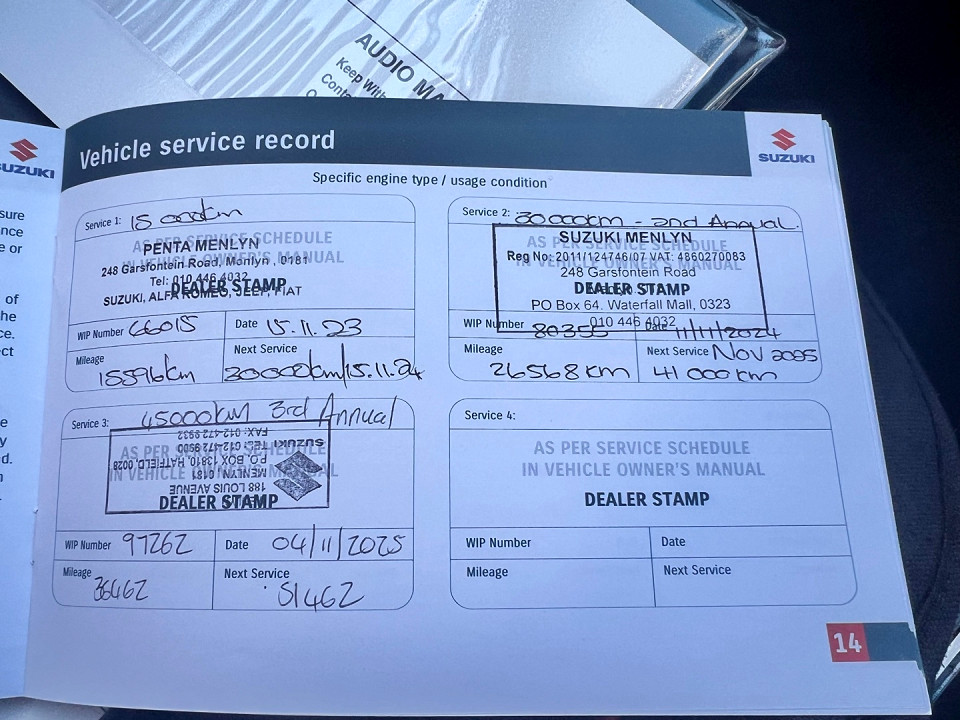 AUDIO MA
Keep With
Conta
SUZUKI
sure
nce
e or
of
he
ce.
ect
e
y
d.
Vehicle service record
SUZUKI
Specific engine type / usage condition
Service 1: 15 000km
AS PER SERVICE SCHEDULE
IN VEHICLE OWNER'S MANUAL
DEALER STAMP
PENTA MENLYN
248 Garsfontein Road, Menlyn, 0181
Tel: 010 446 4032
SUZUKI, ALFA ROMEO, JEEP, FIAT
WIP Number 66015 Date 15.11.23
Mileage 15596km Next Service 30000km/15.11.24
Service 2: 30000km - 2nd Annual.
AS PER SERVICE SCHEDULE
IN VEHICLE OWNER'S MANUAL
DEALER STAMP
SUZUKI MENLYN
Reg No: 2011/124746/07 VAT: 4860270083
248 Garsfontein Road
PO Box 64, Waterfall Mall, 0323
010 446 4032
WIP Number 80355 Date 11/11/2024
Mileage 26568km Next Service Nov 2025
41 000 km
Service 3: 45000km 3rd Annual
AS PER SERVICE SCHEDULE
IN VEHICLE OWNER'S MANUAL
DEALER STAMP
SUZUKI
188 LOUIS AVENUE
MENLYN, 0181
P.O. BOX 13810, HATFIELD, 0028
FAX: 012-472-9932
WIP Number 97262 Date 04/11/2025
Mileage 36462 Next Service 51462
Service 4:
AS PER SERVICE SCHEDULE
IN VEHICLE OWNER'S MANUAL
DEALER STAMP
WIP Number Date
Mileage Next Service
14